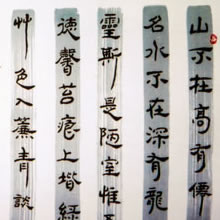 山不在高有僊
名水不在深有龍
靈斯是陋室惟
德馨苔痕上堦綠
艸色入簾青談